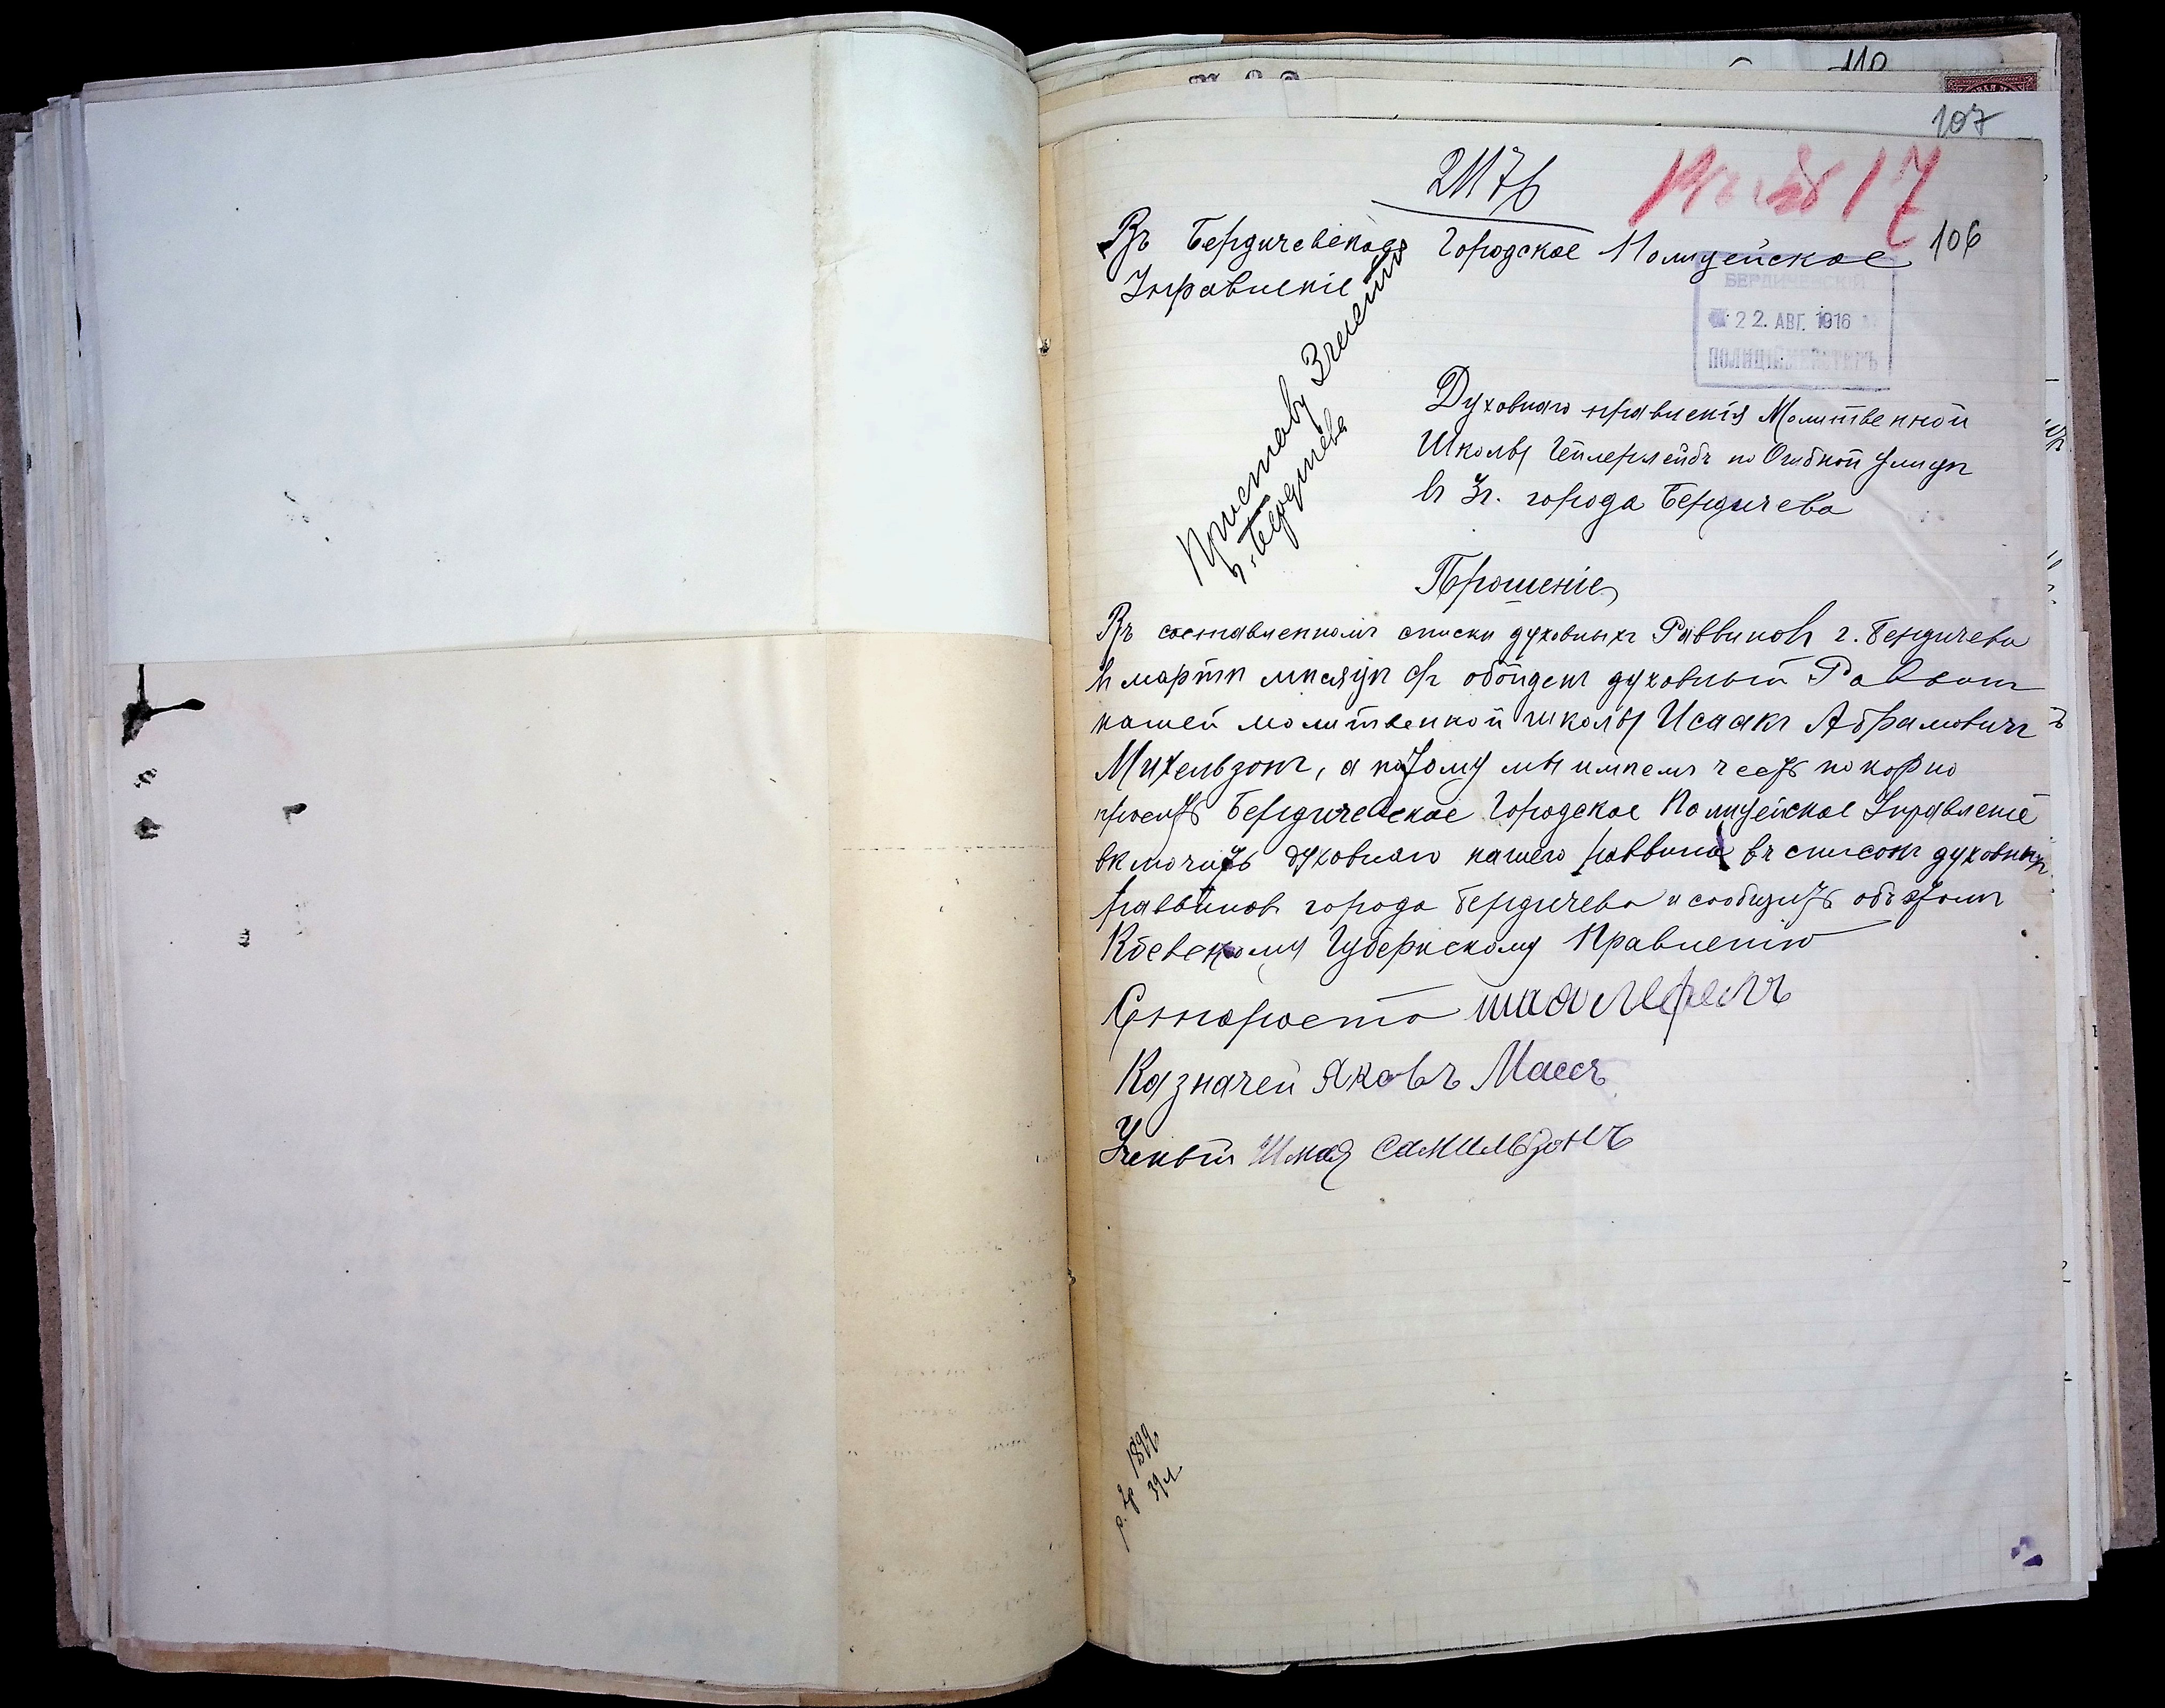 110
107
21176
106
Въ Бердичевское Городское Полицейское
Управленіе
БЕРДИЧЕВСКІЙ
22. АВГ. 1916
ПОЛИЦІЙМЕЙСТЕРЪ
Приставу 3 части
г. Бердичева
Духовнаго правленія Молитвенной
Школы по улицѣ
въ 3ч. города Бердичева
Прошеніе
Въ составленномъ списки духовныхъ Раввиновъ г. Бердичева
въ мартѣ мѣсяцѣ с/г обойденъ духовный Раввинъ
нашей молитвенной школы Исаакъ Абрамовичъ
Михельзонъ, а потому мы имѣемъ честь покорно
просить Бердичевское Городское Полицейское Управленіе
включить духовнаго нашего раввина въ списокъ духовныхъ
раввиновъ города Бердичева и сообщить объ этомъ
Кіевскому Губернскому Правленію
Староста
Казначей Яковъ Массъ
Ученый Шмая Самильзонъ
1899
39 л